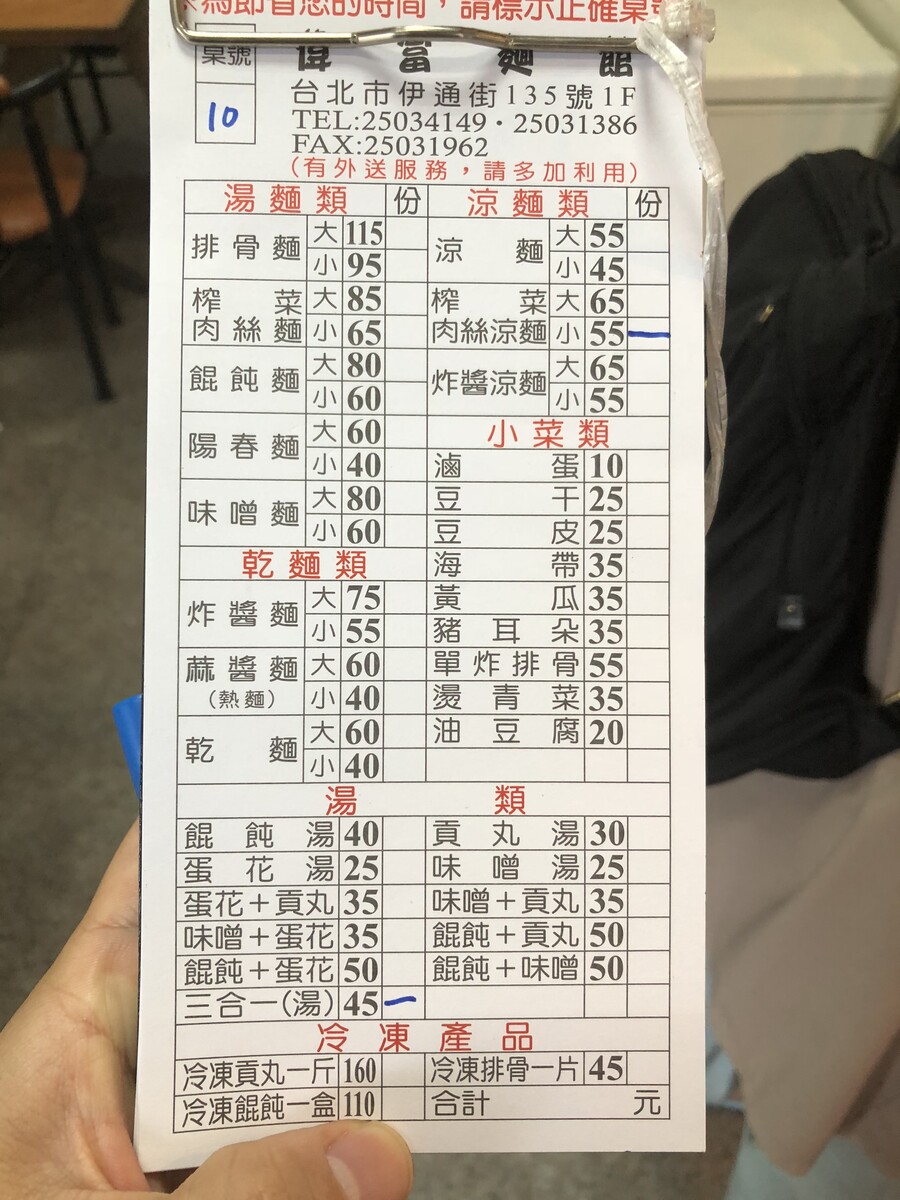 ※為節省您的時間，請標示正確桌號
桌號
10
偉富麵館
台北市伊通街135號1F
TEL:25034149・25031386
FAX:25031962
（有外送服務，請多加利用）
湯麵類 份
排骨麵 大 115
小 95
榨菜肉絲麵 大 85
小 65
餛飩麵 大 80
小 60
陽春麵 大 60
小 40
味噌麵 大 80
小 60
乾麵類
炸醬麵 大 75
小 55
蔴醬麵（熱麵） 大 60
小 40
乾麵 大 60
小 40
涼麵類 份
涼麵 大 55
小 45
榨菜肉絲涼麵 大 65
小 55 一
炸醬涼麵 大 65
小 55
小菜類
滷蛋 10
豆干 25
豆皮 25
海帶 35
黃瓜 35
豬耳朵 35
單炸排骨 55
燙青菜 35
油豆腐 20
湯類
餛飩湯 40 貢丸湯 30
蛋花湯 25 味噌湯 25
蛋花＋貢丸 35 味噌＋貢丸 35
味噌＋蛋花 35 餛飩＋貢丸 50
餛飩＋蛋花 50 餛飩＋味噌 50
三合一(湯) 45 一
冷凍產品
冷凍貢丸一斤 160 冷凍排骨一片 45
冷凍餛飩一盒 110 合計 元